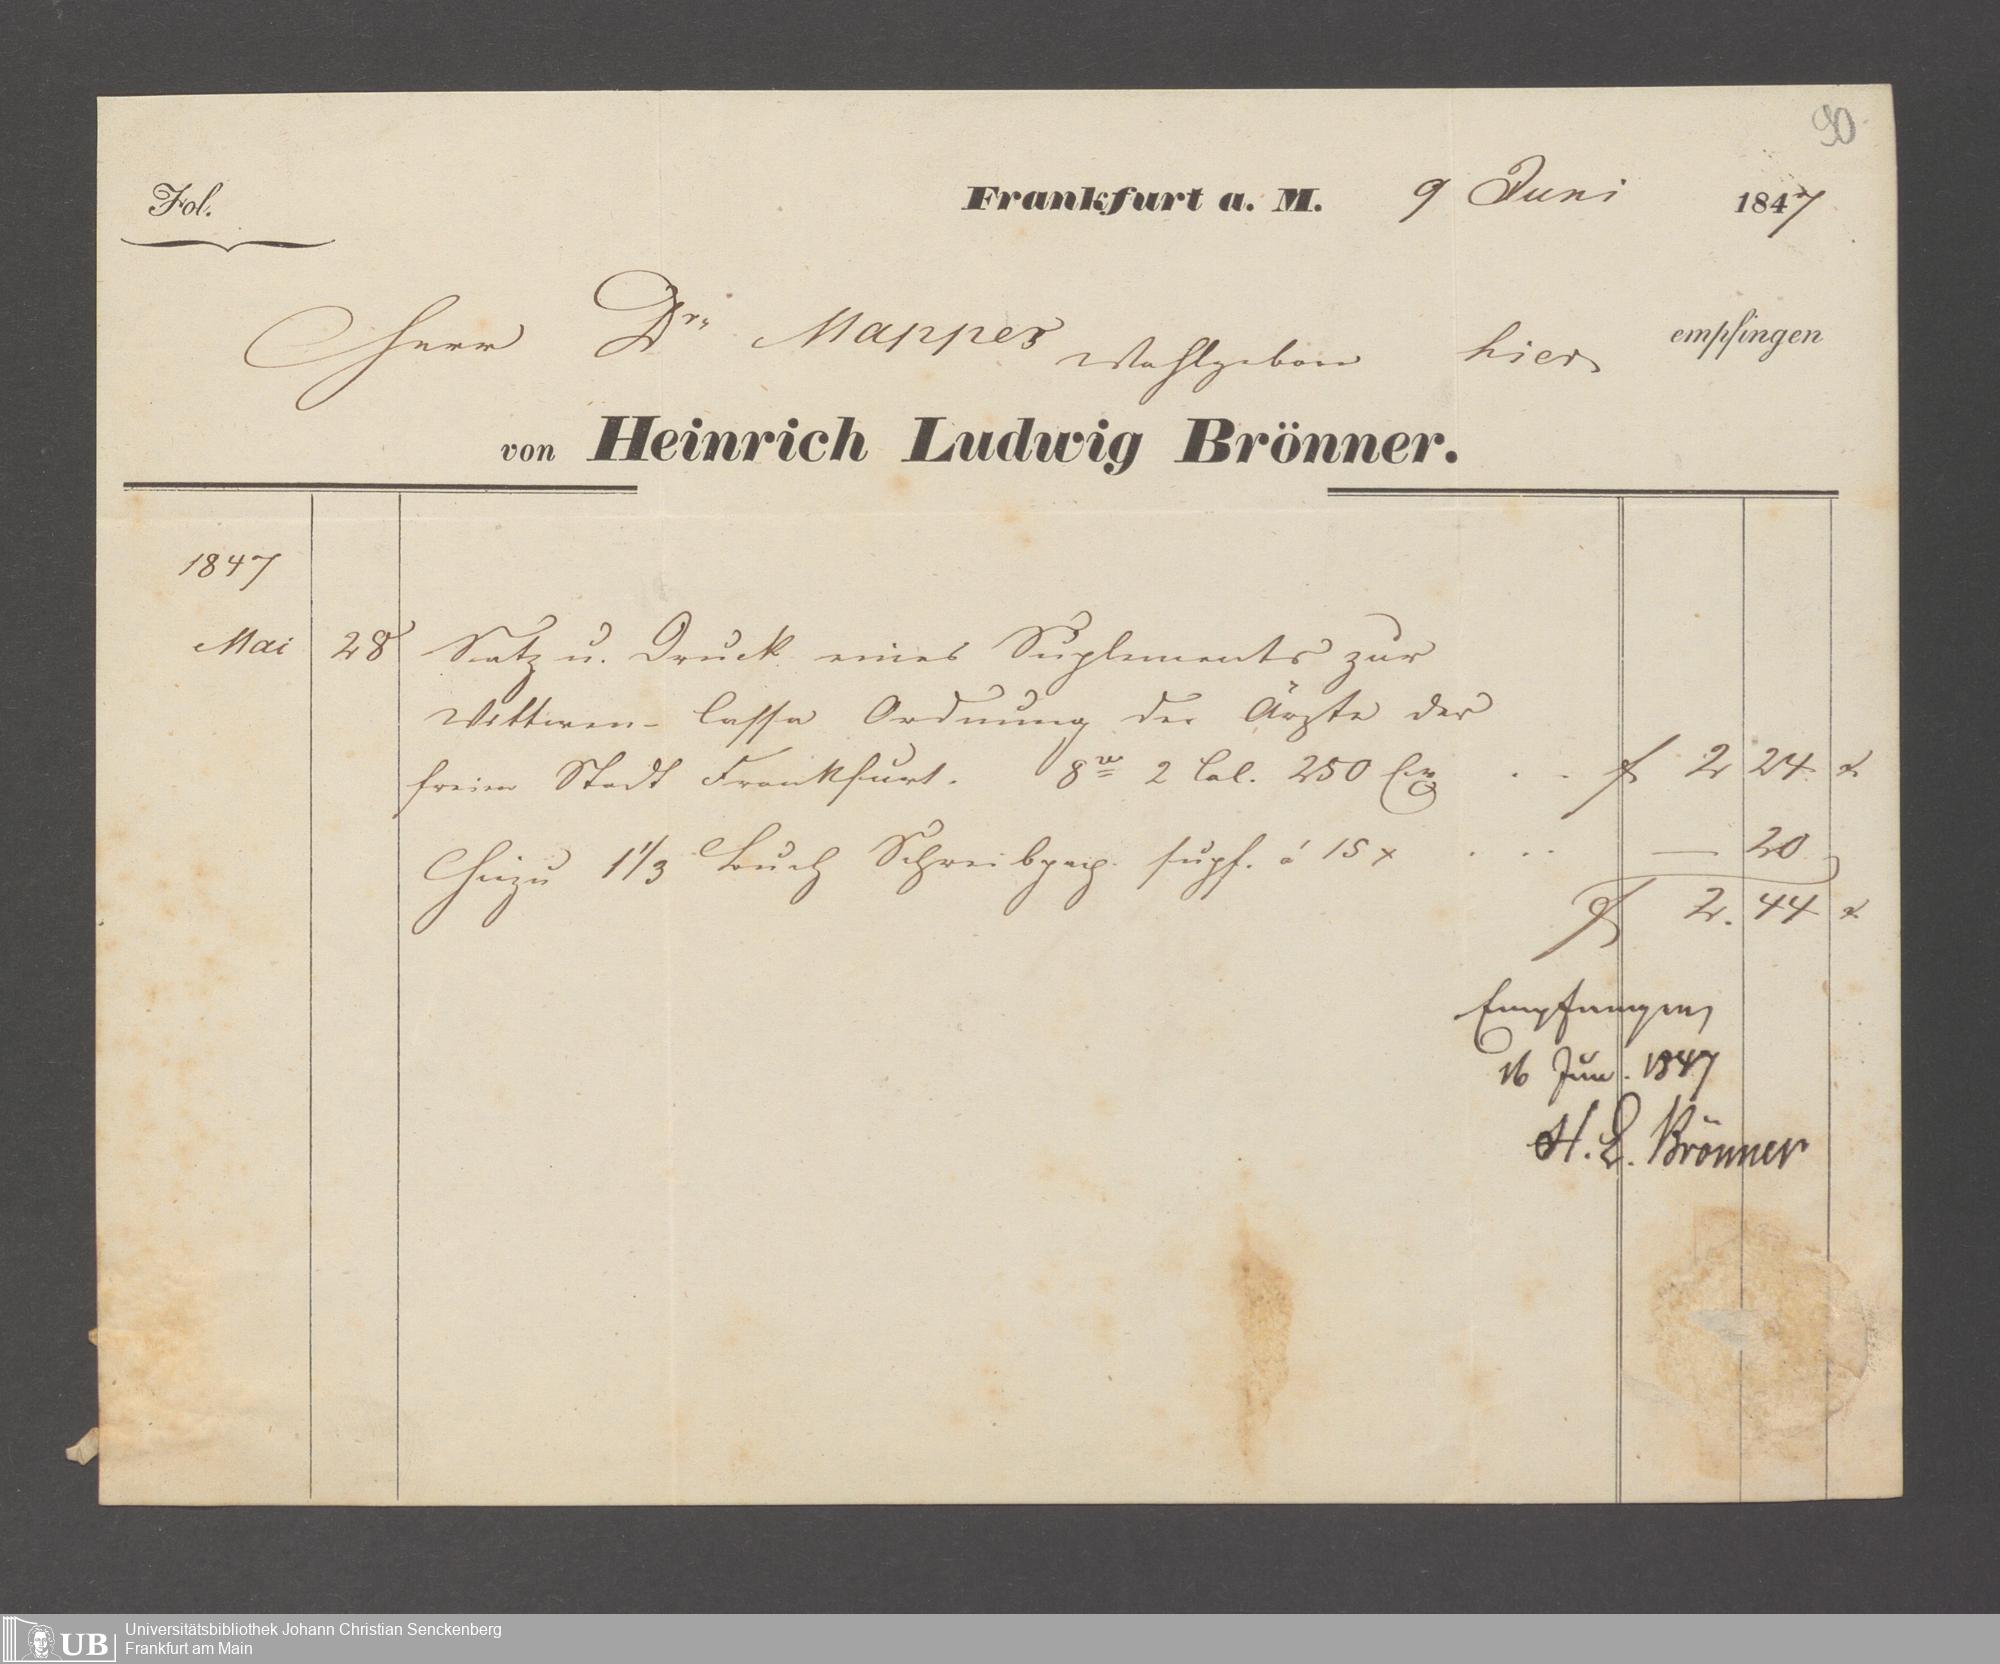 90
Fol. Frankfurt a. M. 9 Juni 1847
Herr Dr. Mappes Wohlgeborn hier empfingen
von Heinrich Ludwig Brönner.
1847
Mai 28 Satz u. Druck eines Suplements zur
Wittwen-Cassa Ordnung der Ärzte der
freien Stadt Frankfurt. 8vo 2 Col. 250 Ex. . . f 2 24 x
Hiezu 1 1/3 Buch Schreibpap. supf. á 15 x . . . — 20
f 2. 44 x
Empfangen
16 Jun. 1847
H. L. Brönner
UB Universitätsbibliothek Johann Christian Senckenberg
Frankfurt am Main